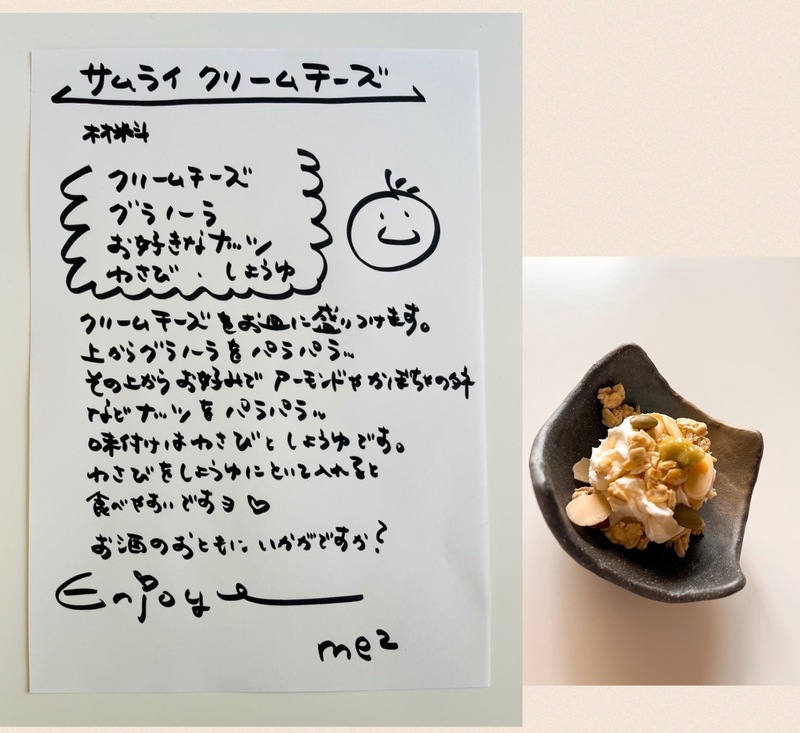 サムライ クリームチーズ
材料
クリームチーズ
グラノーラ
お好きなナッツ
わさび ・ しょうゆ
クリームチーズをお皿に盛りつけます。
上からグラノーラをパラパラ…
その上からお好みでアーモンドやかぼちゃの種
などナッツをパラパラ…
味付けはわさびとしょうゆです。
わさびをしょうゆにといて入れると
食べやすいですヨ♡
お酒のおともにいかがですか?
Enjoy
me2